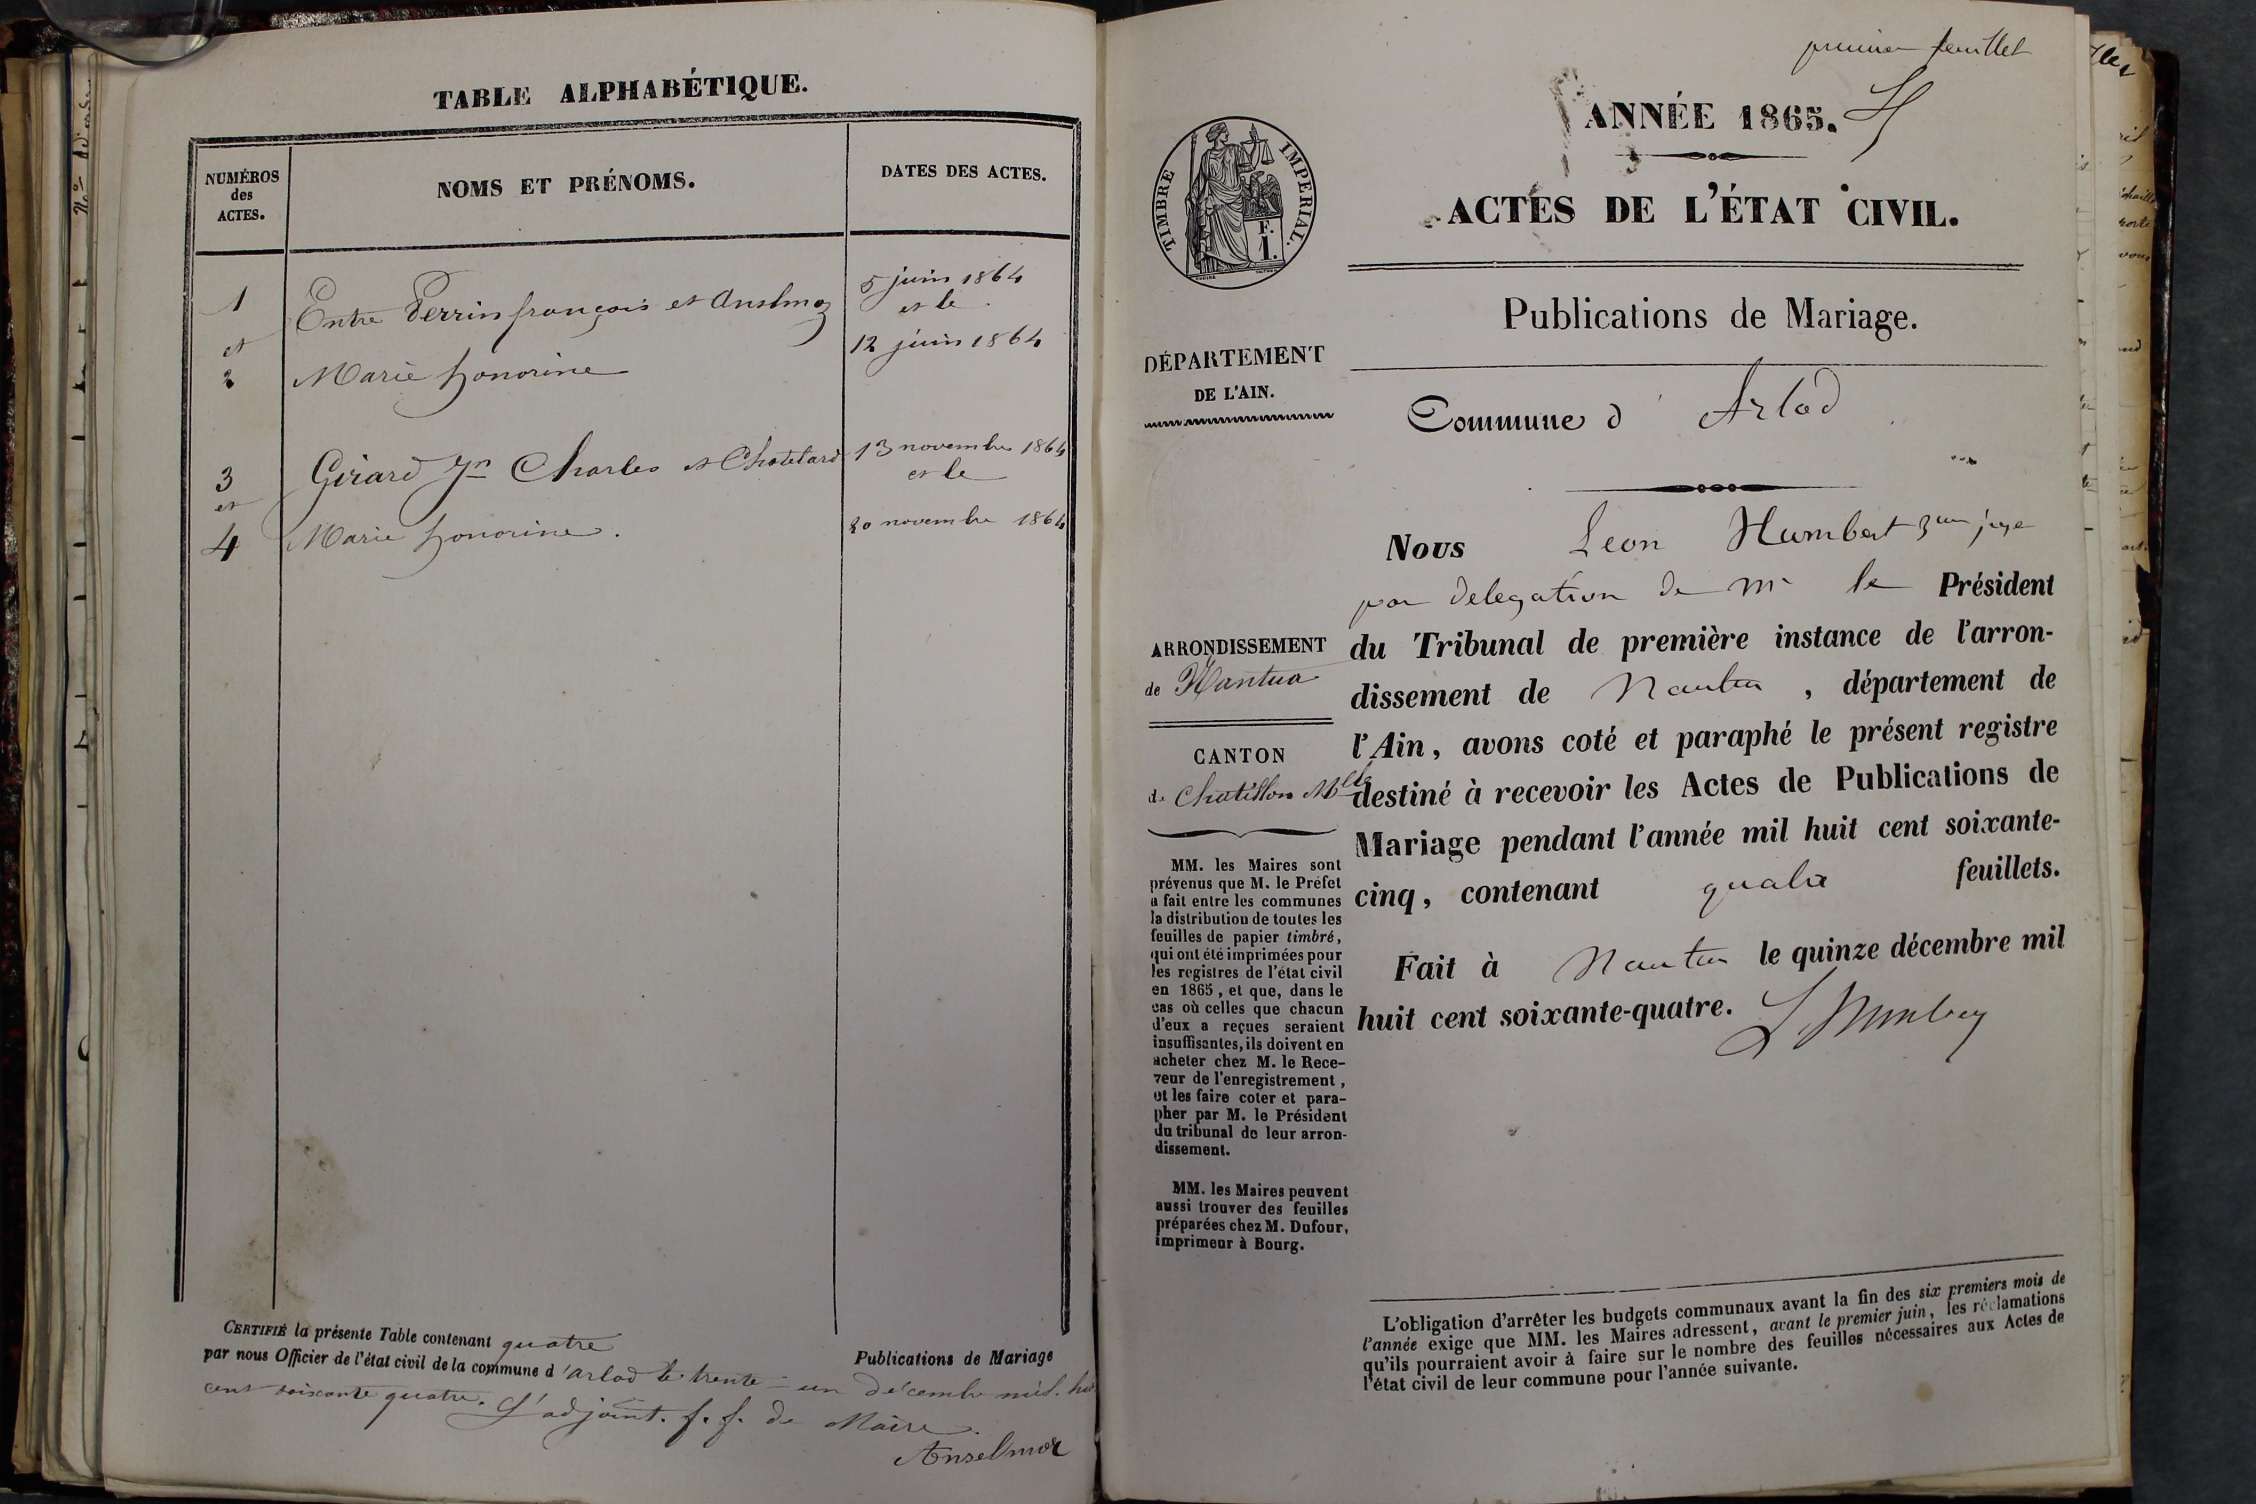 TABLE ALPHABÉTIQUE.
NUMÉROS
des
ACTES.
NOMS ET PRÉNOMS.
DATES DES ACTES.
1
et
2
Entre Perrin françois et Anselmoz
Marie honorine
5 juin 1864
et le
12 juin 1864
3
et
4
Girard Jn Charles et Chatelard
Marie honorine.
13 novembre 1864
et le
20 novembre 1864
CERTIFIÉ la présente Table contenant quatre Publications de Mariage
par nous Officier de l'état civil de la commune d'arlod le trente-un décembre mil. huit
cent soixante quatre. L'adjoint. f. f. de Maire.
Anselmoz
premier feuillet
ANNÉE 1865.
ACTES DE L'ÉTAT CIVIL.
TIMBRE IMPERIAL.
F.
1.
Publications de Mariage.
DÉPARTEMENT
DE L'AIN.
Commune d'Arlod
ARRONDISSEMENT
de Nantua
CANTON
de Chatillon Mlle
MM. les Maires sont
prévenus que M. le Préfet
a fait entre les communes
la distribution de toutes les
feuilles de papier timbré,
qui ont été imprimées pour
les registres de l'état civil
en 1865, et que, dans le
cas où celles que chacun
d'eux a reçues seraient
insuffisantes, ils doivent en
acheter chez M. le Rece-
veur de l'enregistrement,
et les faire coter et para-
pher par M. le Président
du tribunal de leur arron-
dissement.
MM. les Maires peuvent
aussi trouver des feuilles
préparées chez M. Dufour,
imprimeur à Bourg.
Nous Leon Humbert juge
par delegation de Mr le Président
du Tribunal de première instance de l'arron-
dissement de Nantua, département de
l'Ain, avons coté et paraphé le présent registre
destiné à recevoir les Actes de Publications de
Mariage pendant l'année mil huit cent soixante-
cinq, contenant quatre feuillets.
Fait à Nantua le quinze décembre mil
huit cent soixante-quatre.
L'obligation d'arrêter les budgets communaux avant la fin des six premiers mois de
l'année exige que MM. les Maires adressent, avant le premier juin, les réclamations
qu'ils pourraient avoir à faire sur le nombre des feuilles nécessaires aux Actes de
l'état civil de leur commune pour l'année suivante.